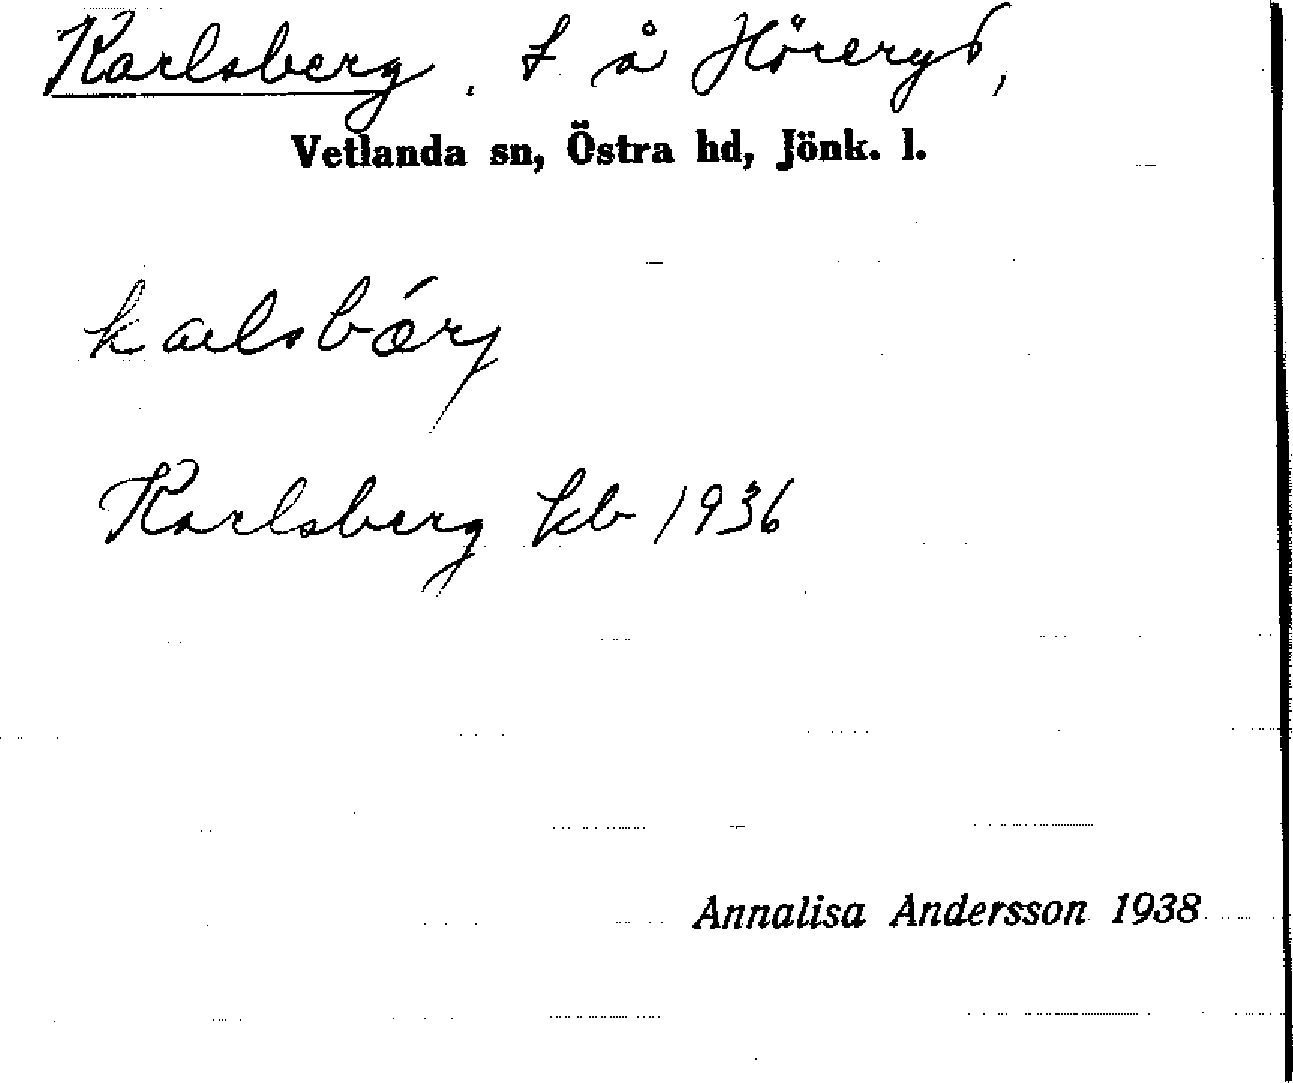 Karlsberg, t å Höreryd,
Vetlanda sn, Östra hd, Jönk. l.
karlsbárj
Karlsberg kb 1936
Annalisa Andersson 1938